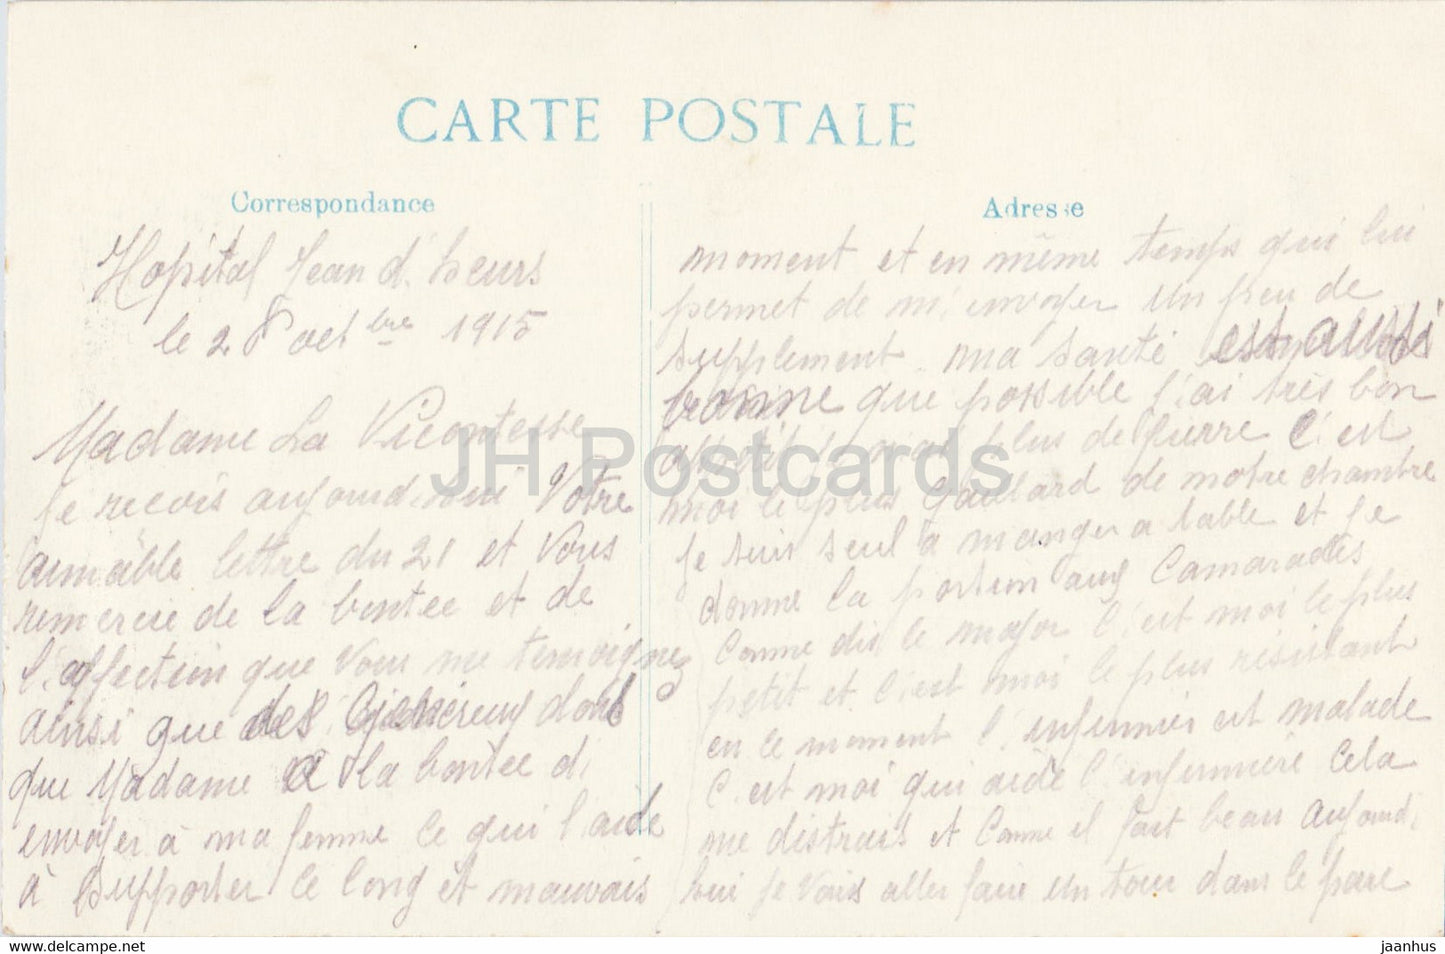 CARTE POSTALE
Correspondance
Hopital Jean d'heurs
le 28 octbre 1915
Madame La Vicontesse
Je recois aujourd'hui Votre
aimable lettre du 21 et Vous
remercie de la bontee et de
l'affection que Vous me temoignez
ainsi que des
que Madame a la bontee d'
envoyer à ma femme ce qui l'aide
à supporter ce long et mauvais
Adresse
moment et en même temps qui lui
permet de m'envoyer un peu de
supplement. ma santé est aussi
bonne que possible j'ai très bon
plus de fierre C'est
moi le plus gaillard de notre chambre
Je suis seul a manger a table et je
donne la portion aux Camarades
Comme dis le major C'est moi le plus
petit et c'est moi le plus résistant
en ce moment l'infirmier est malade
C'est moi qui aide l'infirmière Cela
me distrait et Comme il fait beau aujourd'
hui je Vais aller faire un tour dans le parc
JH Postcards
www.delcampe.net
jaanhus